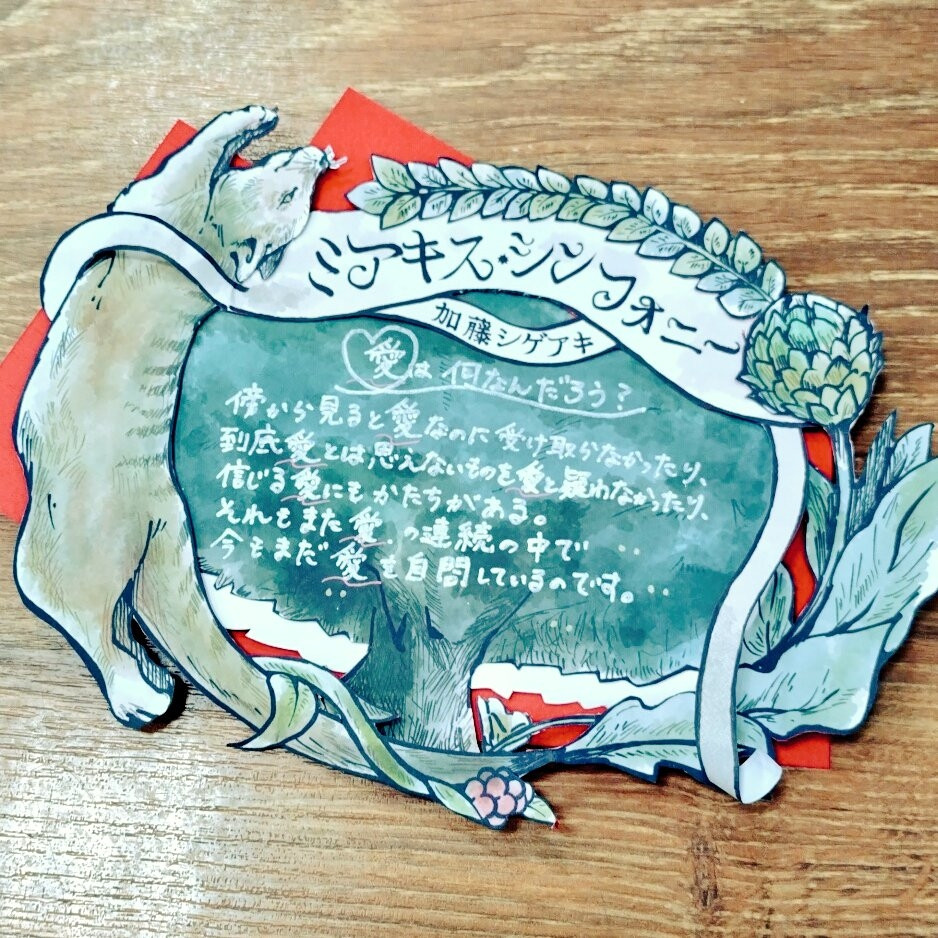 ミアキス・シンフォニー
加藤シゲアキ
愛は何なんだろう?
傍から見ると愛なのに受け取らなかったり、
到底愛とは思えないものを愛と疑わなかったり、
信じる愛にもかたちがある。
それもまた愛。の連続の中で‥
今もまだ愛を自問しているのです。‥